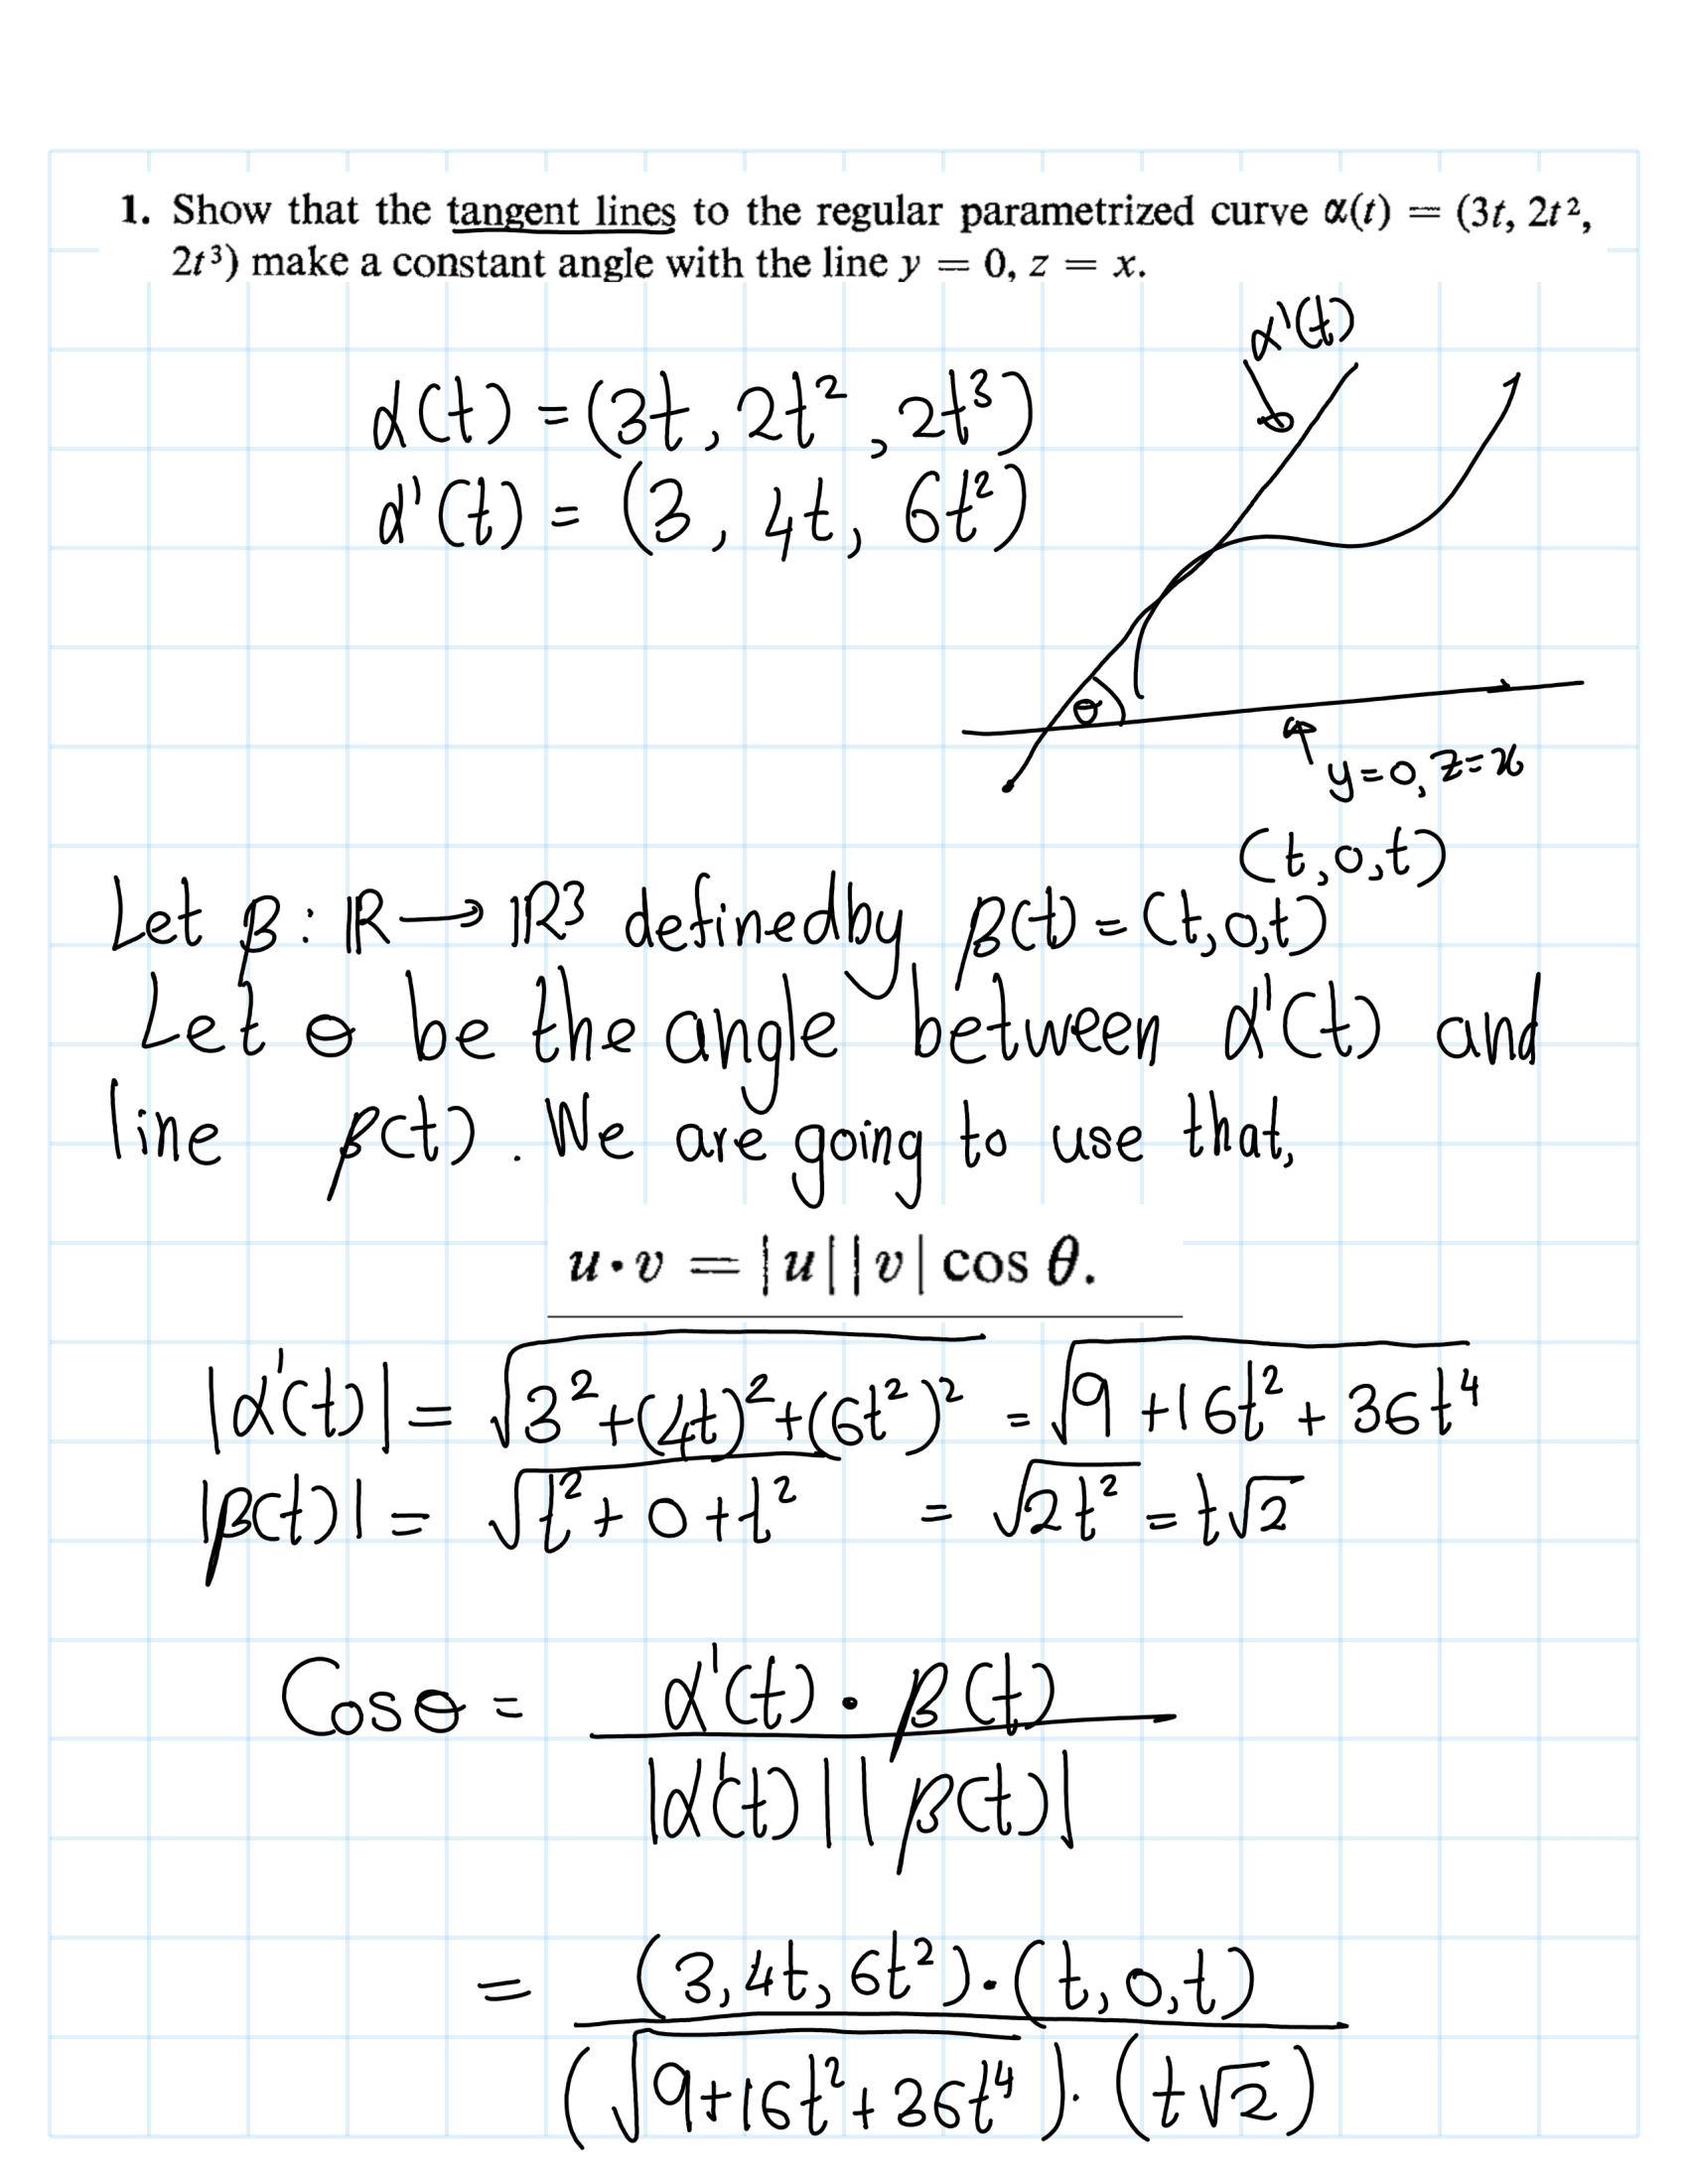 1. Show that the tangent lines to the regular parametrized curve α(t) = (3t, 2t²,
2t³) make a constant angle with the line y = 0, z = x.
α'(t)
α(t) = (3t, 2t², 2t³)
α'(t) = (3, 4t, 6t²)
θ
y=0, z=x
(t,0,t)
Let β : ℝ → ℝ³ defined by β(t) = (t,0,t)
Let θ be the angle between α'(t) and
line β(t). We are going to use that,
u·v = |u||v| cos θ.
|α'(t)| = √(3²+(4t)²+(6t²)²) = √(9+16t²+36t⁴)
|β(t)| = √(t²+0+t²) = √(2t²) = t√2
Cosθ = α'(t)·β(t)
|α'(t)||β(t)|
= (3,4t,6t²)·(t,0,t)
(√(9+16t²+36t⁴))·(t√2)